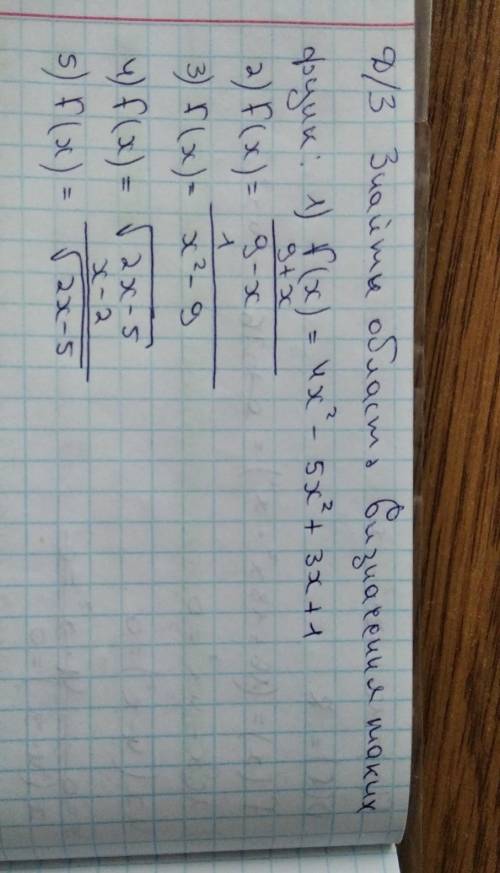 Д/З Знайти область визначення таких
функ : 1) f(x) = 4x² - 5x² + 3x + 1
2) f(x) = (9+x)/(9-x)
3) f(x) = 1/(x²-9)
4) f(x) = √(2x-5)
5) f(x) = (x-2)/√(2x-5)